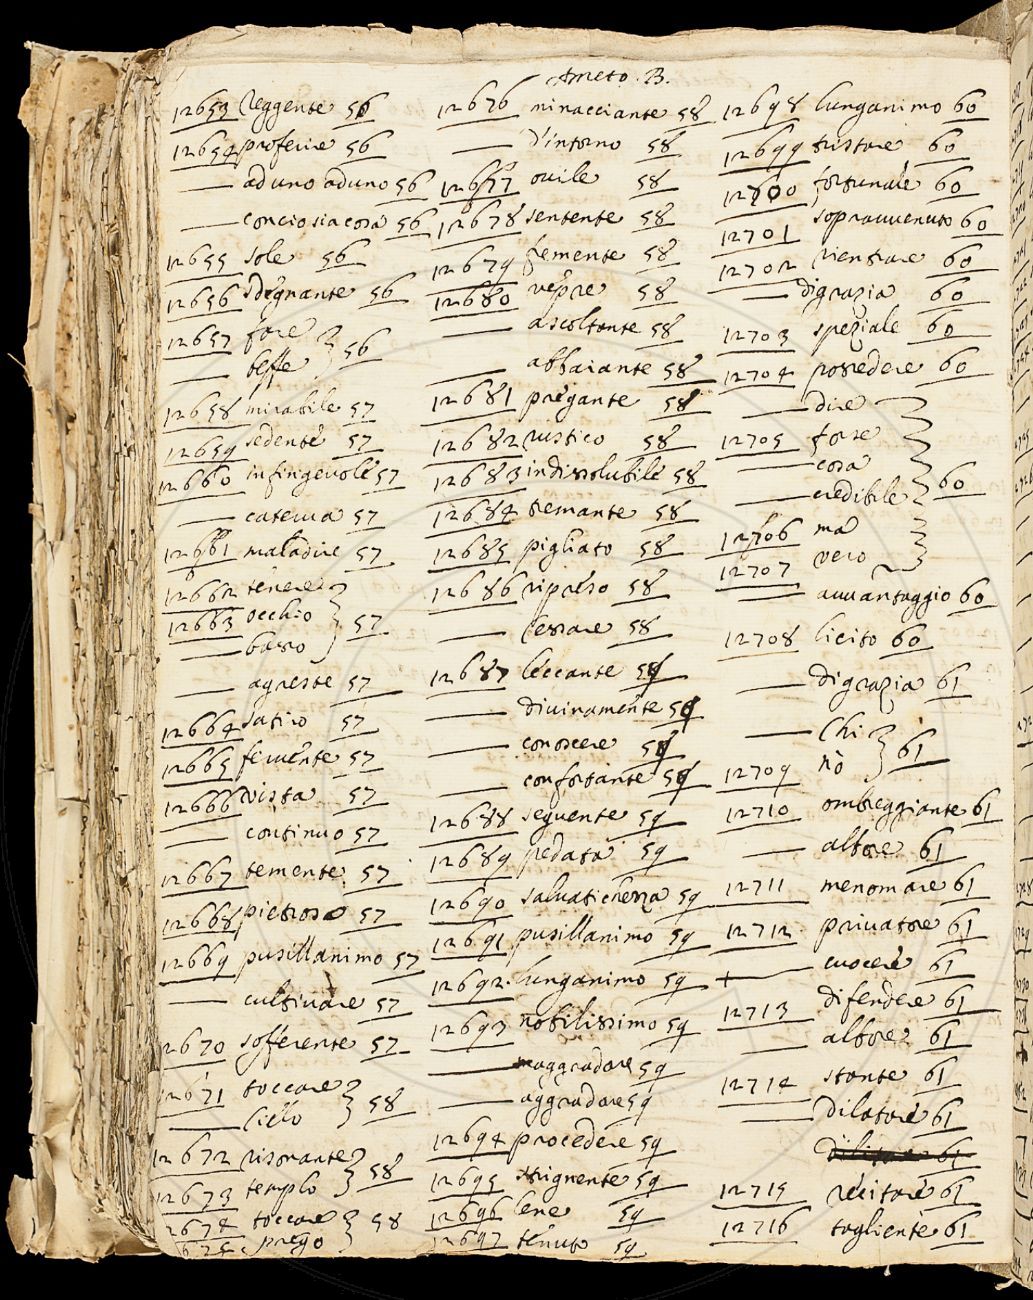 Ameto. B.
12653 leggente 56
12654 proferire 56
—— ad uno ad uno 56
—— conciosiacosa 56
12655 sole 56
12656 sdegnante 56
12657 fare
—— beffe } 56
12658 mirabile 57
12659 sedente 57
12660 infingevole 57
—— caterva 57
12661 maladire 57
12662 tenere
12663 occhio
—— basso } 57
—— agreste 57
12664 satiro 57
12665 fervente 57
12666 vista 57
—— continuo 57
12667 temente 57
12668 pietroso 57
12669 pusillanimo 57
—— cultivare 57
12670 sofferente 57
12671 toccare
—— cielo } 58
12672 risonante
12673 templo } 58
12674 toccare
12675 prego } 58
12676 minacciante 58
—— d'intorno 58
12677 ovile 58
12678 sentente 58
12679 femente 58
12680 vepre 58
—— ascoltante 58
—— abbaiante 58
12681 pregante 58
12682 rustico 58
12683 indissolubile 58
12684 tremante 58
12685 pigliato 58
12686 ripreso 58
—— cessare 58
12687 leccante 59
—— divinamente 59
—— conoscere 59
—— confortante 59
12688 seguente 59
12689 pedata 59
12690 salvatichezza 59
12691 pusillanimo 59
12692. lunganimo 59
12693 nobilissimo 59
—— maggradare 59
—— aggradare 59
12694 procedere 59
12695 strignente 59
12696 lene 59
12697 tenuto 59
12698 lunganimo 60
12699 tristore 60
12700 fortunale 60
12701 sopravvenuto 60
12702 rientrare 60
—— di grazia 60
12703 speziale 60
12704 possedere 60
—— dire
12705 forse
—— cosa
—— credibile } 60
12706 ma
12707 vero
—— avvantaggio 60
12708 licito 60
—— di grazia 61
—— chi
12709 nò } 61
12710 ombreggiante 61
—— altore 61
12711 menomare 61
12712. privatore 61
+ —— cuocere 61
12713 difendere 61
—— altore 61
12714 stante 61
—— dilatare 61
12715 recitare 61
12716 tagliente 61